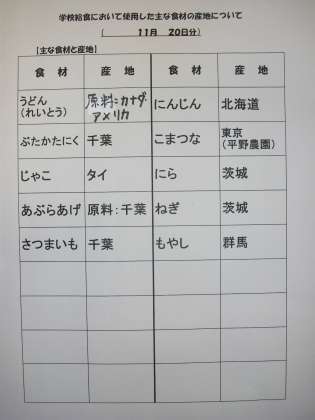 学校給食において使用した主な食材の産地について
( 11月 20日分)
【主な食材と産地】
食 材 産 地 食 材 産 地
うどん
(れいとう) 原料:カナダ・
アメリカ にんじん 北海道
ぶたかたにく 千葉 こまつな 東京
(平野農園)
じゃこ タイ にら 茨城
あぶらあげ 原料:千葉 ねぎ 茨城
さつまいも 千葉 もやし 群馬